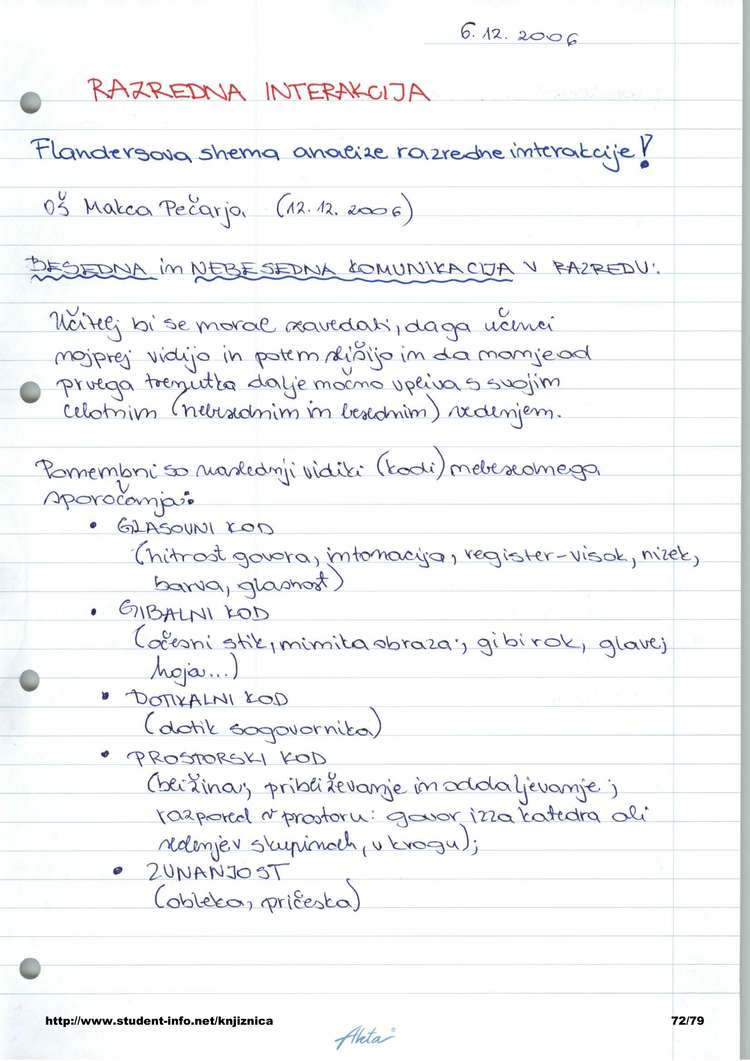 6. 12. 2006
RAZREDNA INTERAKCIJA
Flandersova shema analize razredne interakcije!
OŠ Maksa Pečarja (12. 12. 2006)
BESEDNA in NEBESEDNA KOMUNIKACIJA V RAZREDU:
Učitelj bi se moral zavedati, da ga učenci
najprej vidijo in potem slišijo in da nanje od
prvega trenutka dalje močno vpliva s svojim
celotnim (nebesednim in besednim) vedenjem.
Pomembni so naslednji vidiki (kodi) nebesednega
sporočanja:
• GLASOVNI KOD
(hitrost govora, intonacija, register-visok, nizek,
barva, glasnost)
• GIBALNI KOD
(očesni stik, mimika obraza; gibi rok, glave;
hoja...)
• DOTIKALNI KOD
(dotik sogovornika)
• PROSTORSKI KOD
(bližina; približevanje in oddaljevanje;
razpored v prostoru: govor izza katedra ali
sedenje v skupinah, v krogu);
• ZUNANJOST
(obleka, pričeska)
http://www.student-info.net/knjiznica
72/79
Akta